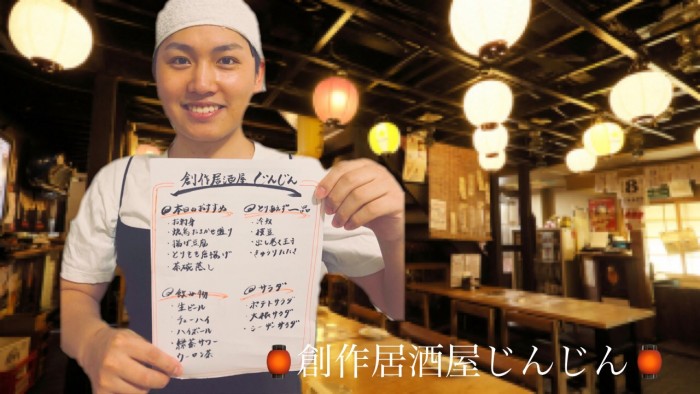 創作居酒屋 じんじん
本日のおすすめ
・お刺身
・焼鳥おまかせ盛り
・揚げ豆腐
・とりもも唐揚げ
・茶碗蒸し
とりあえず一品
・冷奴
・枝豆
・出し巻き玉子
・きゅうりたたき
飲み物
・生ビール
・チューハイ
・ハイボール
・緑茶サワー
・ウーロン茶
サラダ
・ポテトサラダ
・大根サラダ
・シーザーサラダ
8
🏮創作居酒屋じんじん🏮